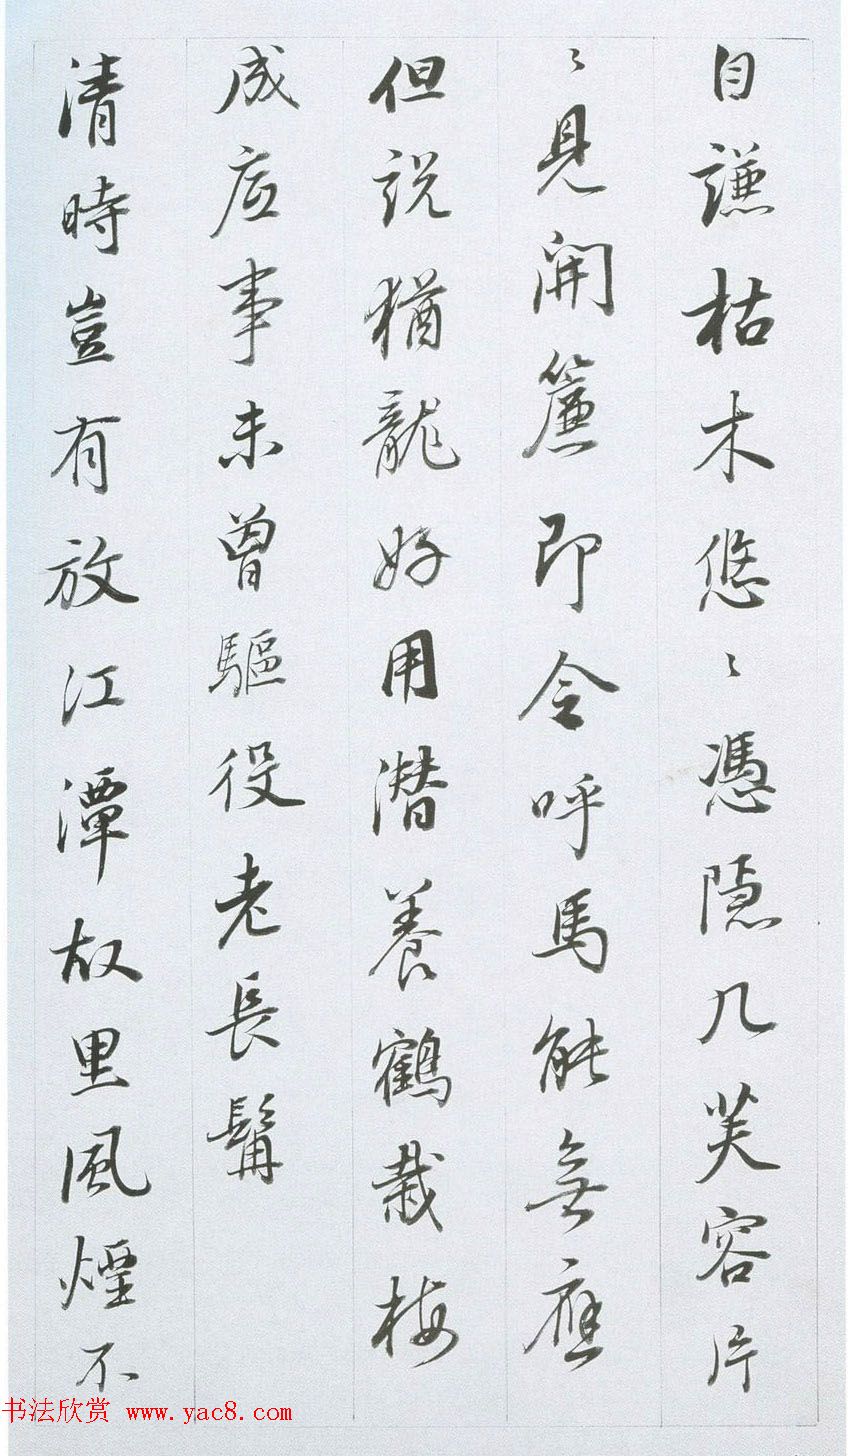 自謙枯木悠〻憑隱几芙容片
〻見開簾即令呼馬能無應
但説猶龍好用潜養鶴栽梅
成底事未曾驅役老長髯
清時豈有放江潭故里風煙不
书法欣赏 www.yac8.com